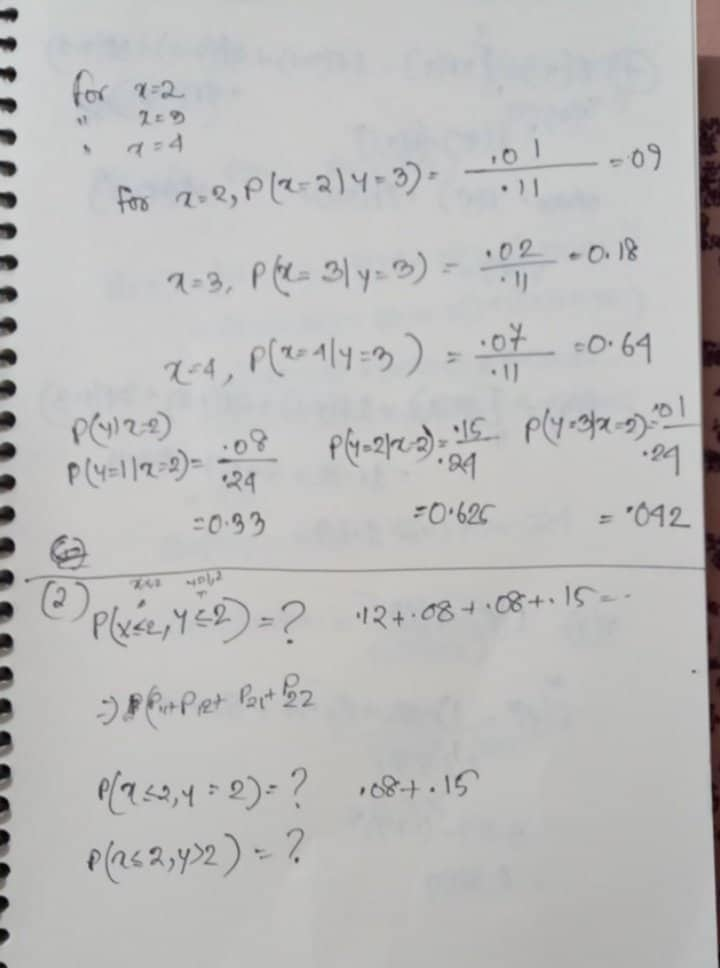 for x=2
" x=3
" x=4
for x=2, P(x=2|y=3) = .01/.11 = .09
x=3, P(x=3|y=3) = .02/.11 = 0.18
x=4, P(x=4|y=3) = .07/.11 = 0.64
P(y|x=2)
P(y=1|x=2) = .08/.24 P(y=2|x=2) = .15/.24 P(y=3|x=2) = .01/.24
=0.33 =0.625 = .042
(2) P(x≤2, y≤2) = ? .12+.08+.08+.15=
=) P(P11+P12+P21+P22
P(x≤2, y=2) = ? .08+.15
P(x≤2, y>2) = ?